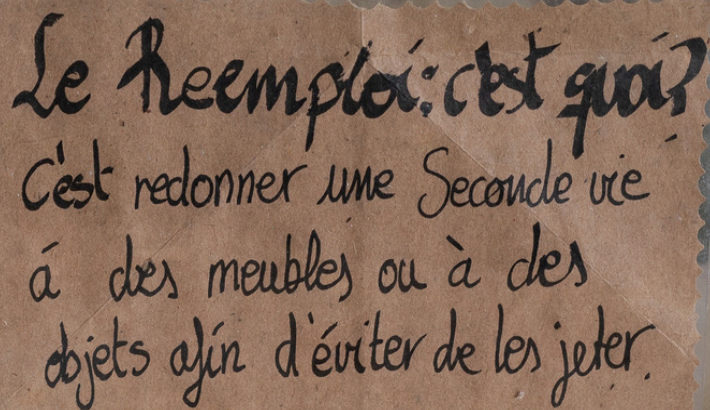 Le Reemploi: c'est quoi?
C'est redonner une Seconde vie
á des meubles ou à des
objets afin d'éviter de les jeter.